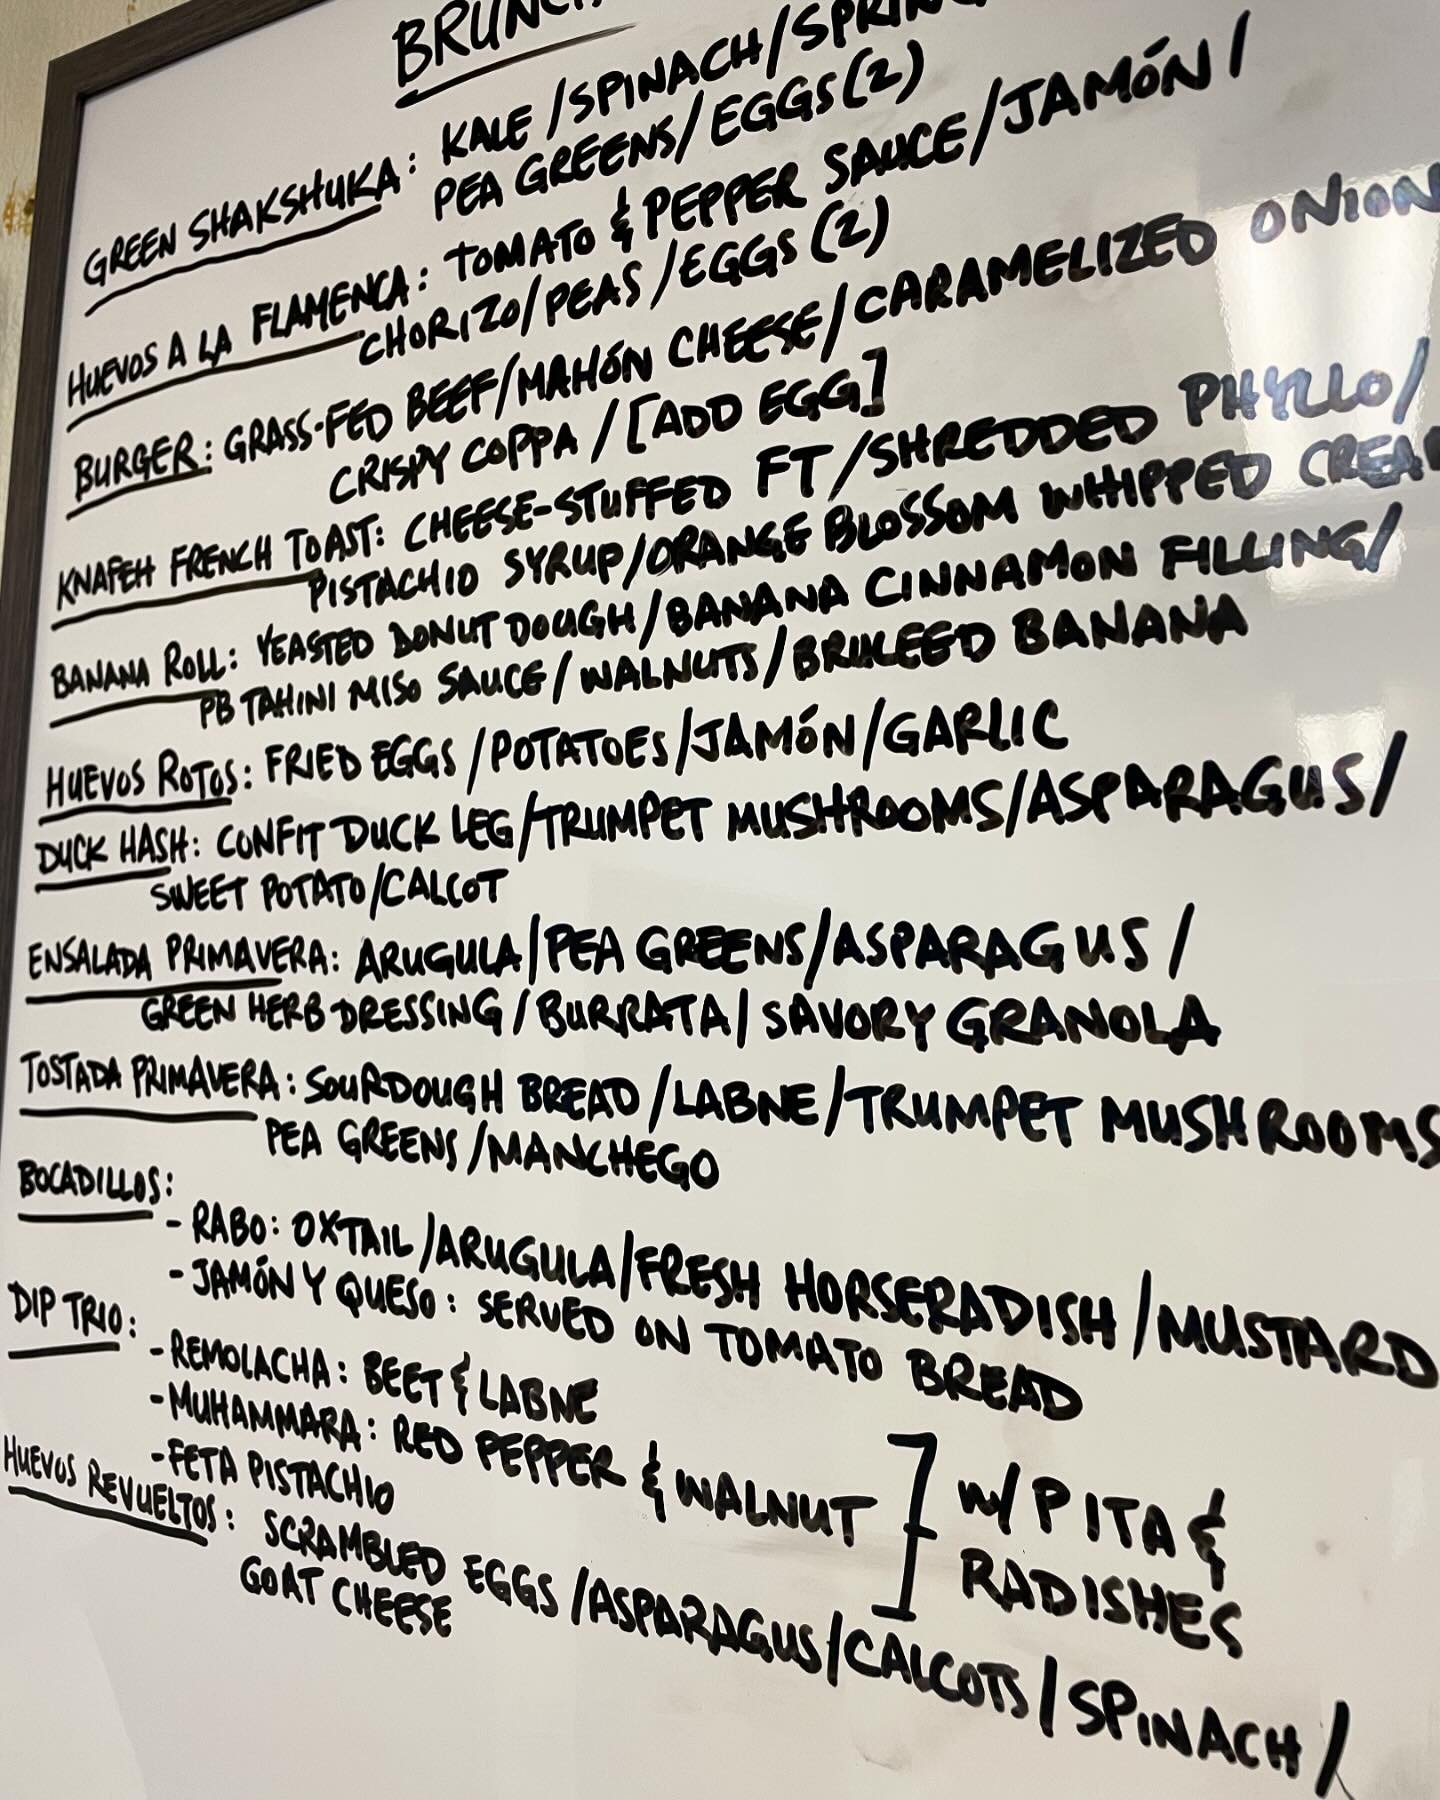 GREEN SHAKSHUKA: KALE/SPINACH/
PEA GREENS/EGGS(2)
HUEVOS A LA FLAMENCA: TOMATO & PEPPER SAUCE/JAMÓN/
CHORIZO/PEAS/EGGS(2)
BURGER: GRASS-FED BEEF/MAHÓN CHEESE/CARAMELIZED ONION
CRISPY COPPA/[ADD EGG]
KNAFEH FRENCH TOAST: CHEESE-STUFFED FT/SHREDDED PHYLLO/
PISTACHIO SYRUP/ORANGE BLOSSOM WHIPPED
BANANA ROLL: YEASTED DONUT DOUGH/BANANA CINNAMON FILLING/
PB TAHINI MISO SAUCE/WALNUTS/BRULEED BANANA
HUEVOS ROTOS: FRIED EGGS/POTATOES/JAMÓN/GARLIC
DUCK HASH: CONFIT DUCK LEG/TRUMPET MUSHROOMS/ASPARAGUS/
SWEET POTATO/CALCOT
ENSALADA PRIMAVERA: ARUGULA/PEA GREENS/ASPARAGUS/
GREEN HERB DRESSING/BURRATA/SAVORY GRANOLA
TOSTADA PRIMAVERA: SOURDOUGH BREAD/LABNE/TRUMPET MUSHROOMS
PEA GREENS/MANCHEGO
BOCADILLOS:
- RABO: OXTAIL/ARUGULA/FRESH HORSERADISH/MUSTARD
- JAMÓN Y QUESO: SERVED ON TOMATO BREAD
DIP TRIO:
- REMOLACHA: BEET & LABNE
- MUHAMMARA: RED PEPPER & WALNUT
- FETA PISTACHIO
] W/ PITA &
RADISHES
HUEVOS REVUELTOS: SCRAMBLED EGGS/ASPARAGUS/CALCOTS/SPINACH/
GOAT CHEESE